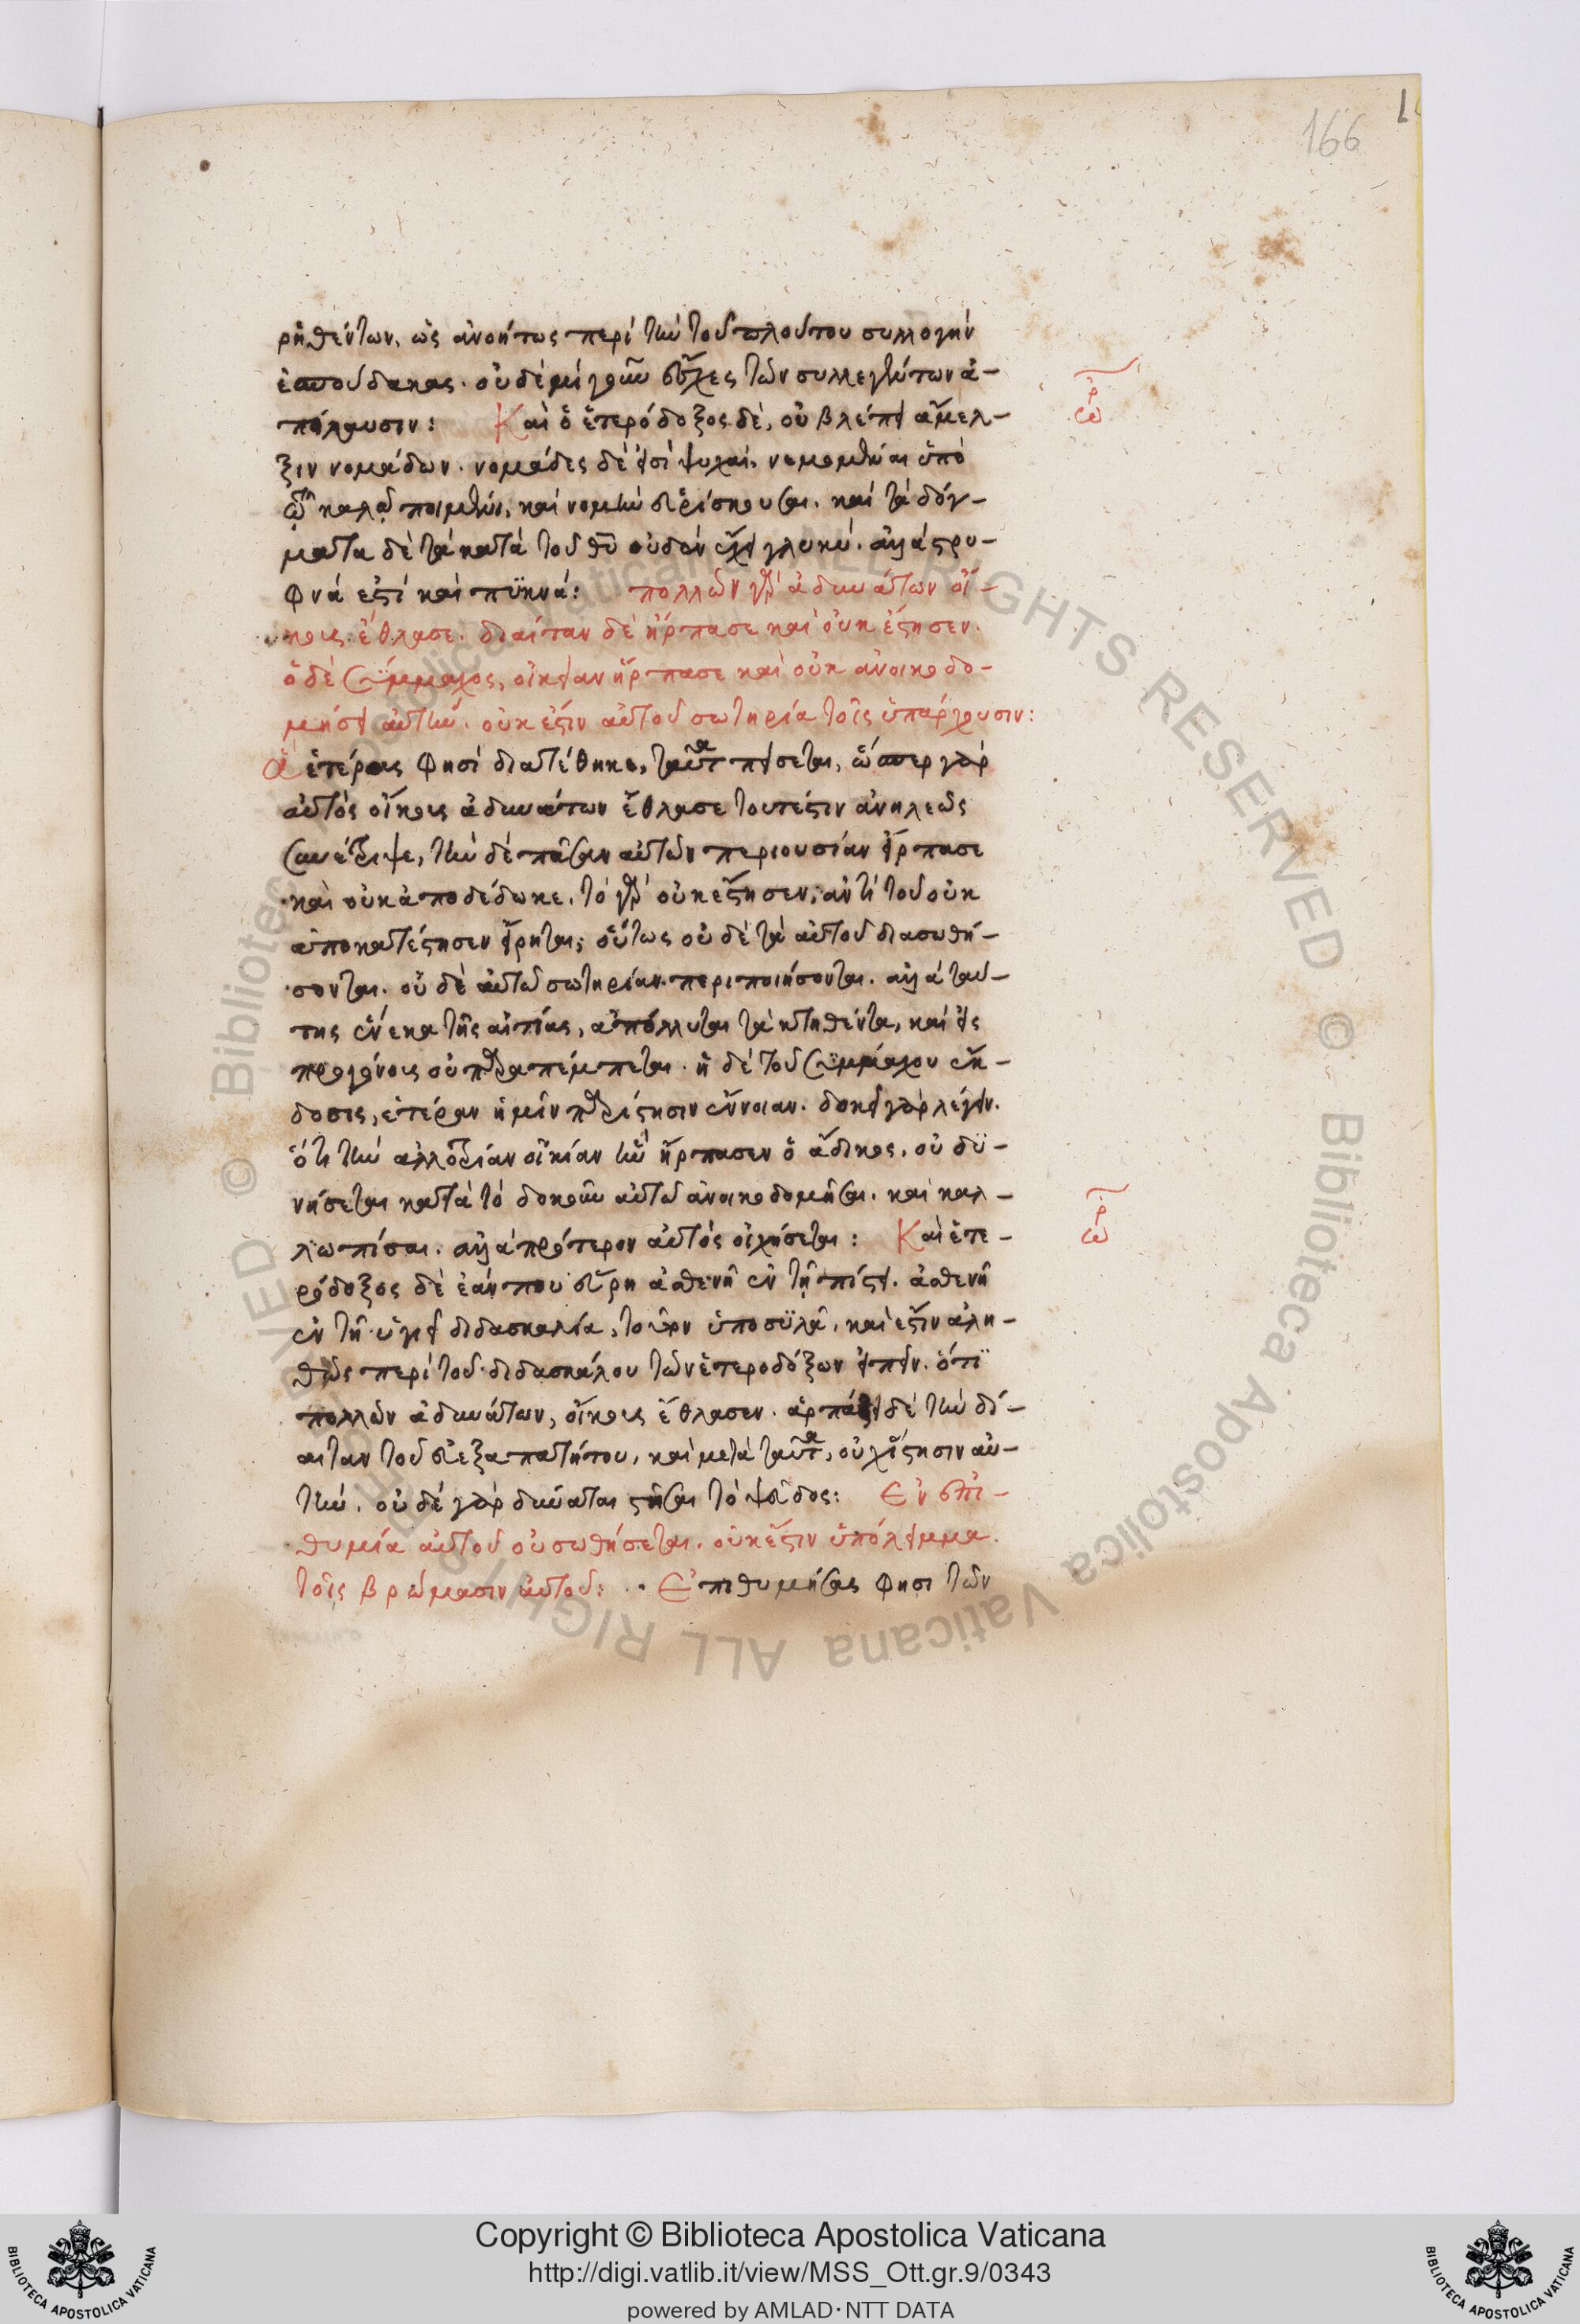 166
ρηθέντων, ὡς ἀνοήτως περὶ τὴν τοῦ πλούτου συλλογὴν
ἐσπούδακας. οὐδὲ μίαν ἔσχες τῶν συλλεγέντων ἀ-
πόλαυσιν: Καὶ ὁ ἑτερόδοξος δὲ, οὐ βλέπει ἄμελ-
ξιν νομάδων. νομάδες δὲ εἰσὶ ψυχαὶ, νεμόμεναι ὑπὸ
τῶ καλῶ ποιμένι, καὶ νομὴν εὑρίσκουσαι. καὶ τὰ δόγ-
ματα δὲ τὰ κατὰ τοῦ θῦ οὐδὲν ἔχει γλυκύ. ἀλλὰ στρυ-
φνά ἐστι καὶ πϊκνά: πολλῶν γὰρ ἀδυνάτων οἴ-
κους ἔθλασε. δίαιταν δὲ ἥρπασε καὶ οὐκ ἔστησεν.
ὁ δὲ Σύμμαχος, οἰκείαν ἥρπασε καὶ οὐκ ἀνοικοδο-
μήσει αὐτήν. οὐκ ἔστιν αὐτοῦ σωτηρία τοῖς ὑπάρχουσιν:
ἃ ἑτέροις φησὶ διατέθηκε, ταῦτα πείσεται, ὥσπερ γὰρ
αὐτὸς οἴκους ἀδυνάτων ἔθλασε τουτέστιν ἀνηλεῶς
συνέτριψε, τὴν δὲ πᾶσαν αὐτῶν περιουσίαν ἥρπασε
καὶ οὐκ ἀποδέδωκε. τὸ γὰρ οὐκ ἔστησεν, ἀντὶ τοῦ οὐκ
ἀποκατέστησεν εἴρηται, οὕτως οὐδὲ τὰ αὐτοῦ διασωθή-
σονται. οὐδὲ αὐτῶ σωτηρίαν περιποιήσονται. ἀλλὰ ταύ-
της ἕνεκα τῆς αἰτίας, ἀπόλλυται τὰ κτηθέντα, καὶ εἰς
προγόνους οὐ παραπέμπεται. ἡ δὲ τοῦ Συμμάχου ἔκ-
δοσις, ἑτέραν ἡμῖν παρίστησιν ἔννοιαν. δοκεῖ γὰρ λέγειν.
ὅτι τὴν ἀλλοτρίαν οἰκίαν ἣν ἥρπασεν ὁ ἄδικος, οὐ δϋ-
νήσεται κατὰ τὸ δοκοῦν αὐτῶ ἀνοικοδομῆσαι. καὶ καλ-
λωπίσαι. ἀλλὰ πρότερον αὐτὸς οἰχήσεται: Καὶ ἑτε-
ρόδοξος δὲ ἐάν που εὕρη ἀσθενῆ ἐν τῆ πίστει. ἀσθενῆ
ἐν τῆ ὑγιεῖ διδασκαλία, τοῦτον ὑποσϋλᾶ, καὶ ἔστιν ἀλη-
θῶς περὶ τοῦ διδασκάλου τῶν ἑτεροδόξων εἰπεῖν. ὅτϊ
πολλῶν ἀδυνάτων, οἴκους ἔθλασεν. ἁρπάζει δὲ τὴν δί-
αιταν τοῦ ἐξαπατήτου, καὶ μετὰ ταῦτα, οὐχ ἵστησιν αὐ-
τήν. οὐδὲ γὰρ δύναται στῆσαι τὸ ψεῦδος: Ἐν ἐπι-
θυμία αὐτοῦ οὐ σωθήσεται. οὐκ ἔστιν ὑπόλειμμα
τοῖς βρώμασιν αὐτοῦ: Ἐπιθυμήσας φησι τῶν
Copyright © Biblioteca Apostolica Vaticana
http://digi.vatlib.it/view/MSS_Ott.gr.9/0343
powered by AMLAD·NTT DATA